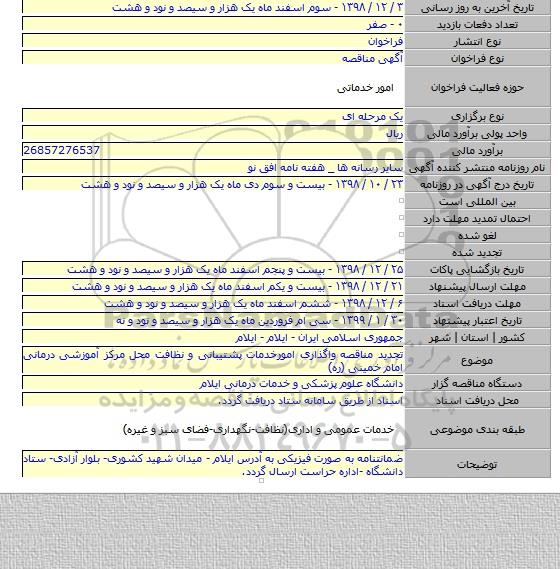 تاریخ آخرین به روز رسانی ۳ / ۱۲ / ۱۳۹۸ - سوم اسفند ماه یک هزار و سیصد و نود و هشت
تعداد دفعات بازدید ۰ - صفر
نوع انتشار فراخوان
نوع فراخوان آگهی مناقصه
حوزه فعالیت فراخوان امور خدماتی
نوع برگزاری یک مرحله ای
واحد پولی برآورد مالی ریال
برآورد مالی 26857276537
نام روزنامه منتشر کننده آگهی سایر رسانه ها _ هفته نامه افق نو
تاریخ درج آگهی در روزنامه ۲۳ / ۱۰ / ۱۳۹۸ - بیست و سوم دی ماه یک هزار و سیصد و نود و هشت
بین المللی است
احتمال تمدید مهلت دارد
لغو شده
تجدید شده
تاریخ بازگشایی پاکات ۲۵ / ۱۲ / ۱۳۹۸ - بیست و پنجم اسفند ماه یک هزار و سیصد و نود و هشت
مهلت ارسال پیشنهاد ۲۱ / ۱۲ / ۱۳۹۸ - بیست و یکم اسفند ماه یک هزار و سیصد و نود و هشت
مهلت دریافت اسناد ۶ / ۱۲ / ۱۳۹۸ - ششم اسفند ماه یک هزار و سیصد و نود و هشت
تاریخ اعتبار پیشنهاد ۳۰ / ۱ / ۱۳۹۹ - سی ام فروردین ماه یک هزار و سیصد و نود و نه
کشور | استان | شهر جمهوری اسلامی ایران - ایلام - ایلام
موضوع تجدید مناقصه واگذاری امورخدمات پشتیبانی و نظافت محل مرکز آموزشی درمانی
امام خمینی (ره)
دستگاه مناقصه گزار دانشگاه علوم پزشکی و خدمات درمانی ایلام
محل دریافت اسناد اسناد از طریق سامانه ستاد دریافت گردد.
طبقه بندی موضوعی خدمات عمومی و اداری(نظافت-نگهداری-فضای سبز و غیره)
توضیحات ضمانتنامه به صورت فیزیکی به آدرس ایلام - میدان شهید کشوری- بلوار آزادی- ستاد
دانشگاه -اداره حراست ارسال گردد.
۰۲۱-۸۸۳۴۹۶۷۰-۵